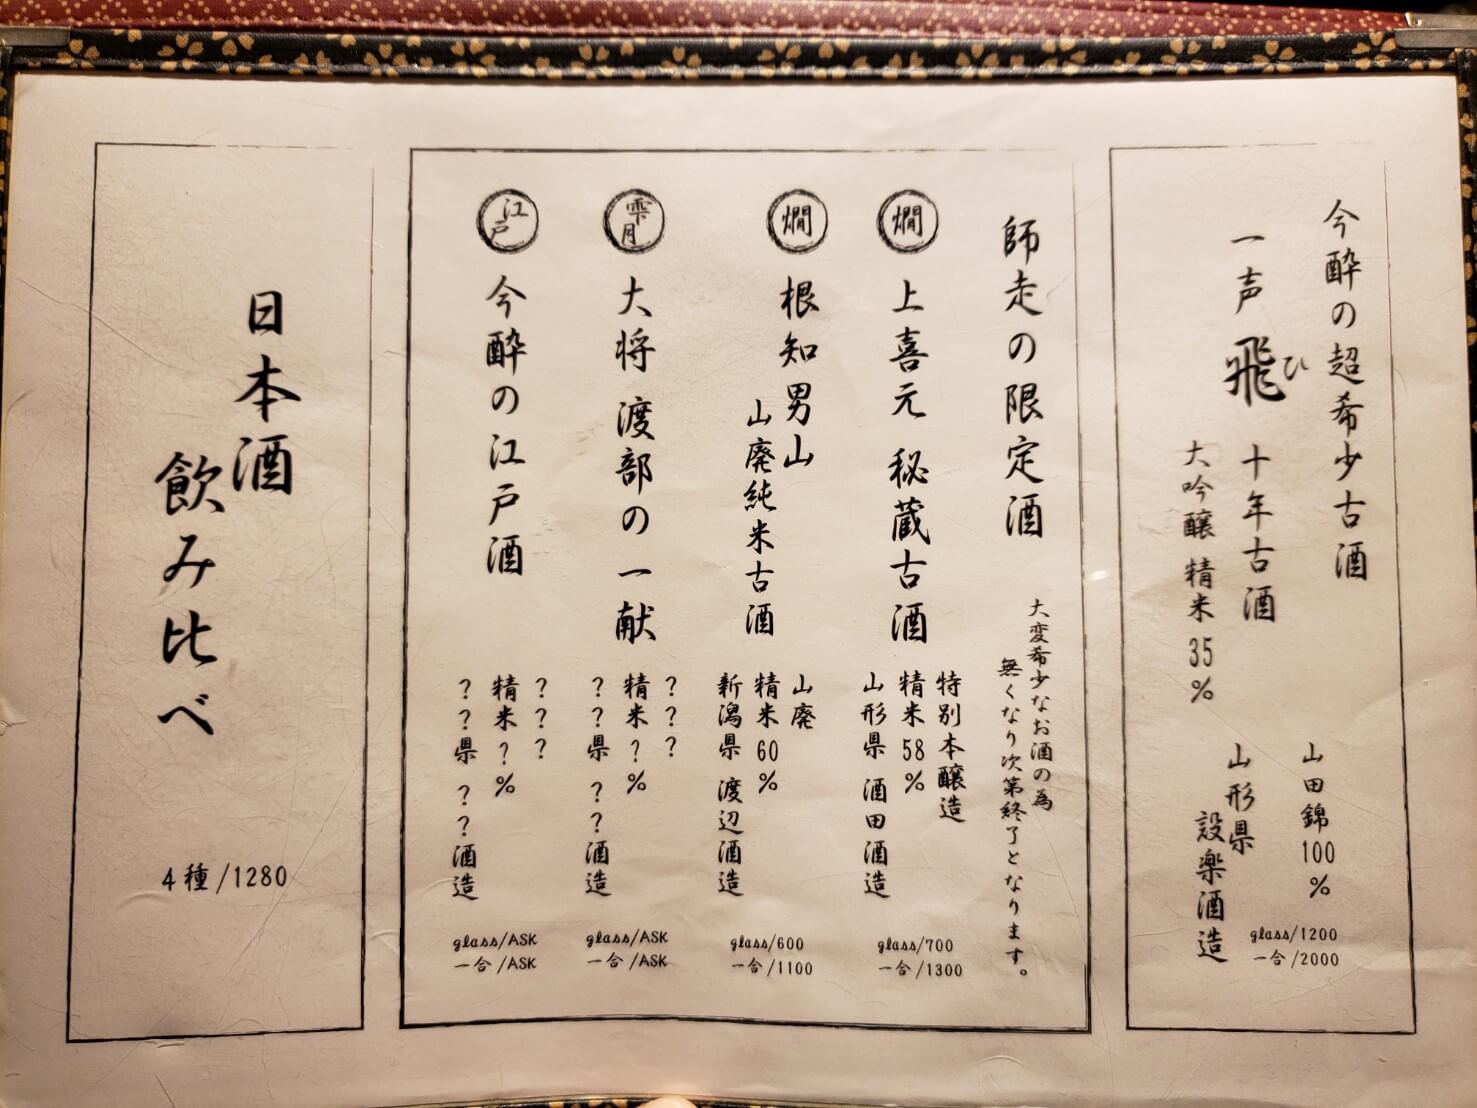 今酔の超希少古酒
一声 飛 十年古酒
ひ
大吟醸 精米 35%
山田錦 100%
山形県
設楽酒造
glass/1200
一合/2000
師走の限定酒
大変希少なお酒の為
無くなり次第終了となります。
燗
上喜元 秘蔵古酒
特別本醸造
精米 58%
山形県 酒田酒造
glass/700
一合/1300
燗
根知男山
山廃純米古酒
山廃
精米 60%
新潟県 渡辺酒造
glass/600
一合/1100
雫月
大将 渡部の一献
???
精米?%
??県 ??酒造
glass/ASK
一合/ASK
江戸
今酔の江戸酒
???
精米?%
??県 ??酒造
glass/ASK
一合/ASK
日本酒
飲み比べ
4種/1280